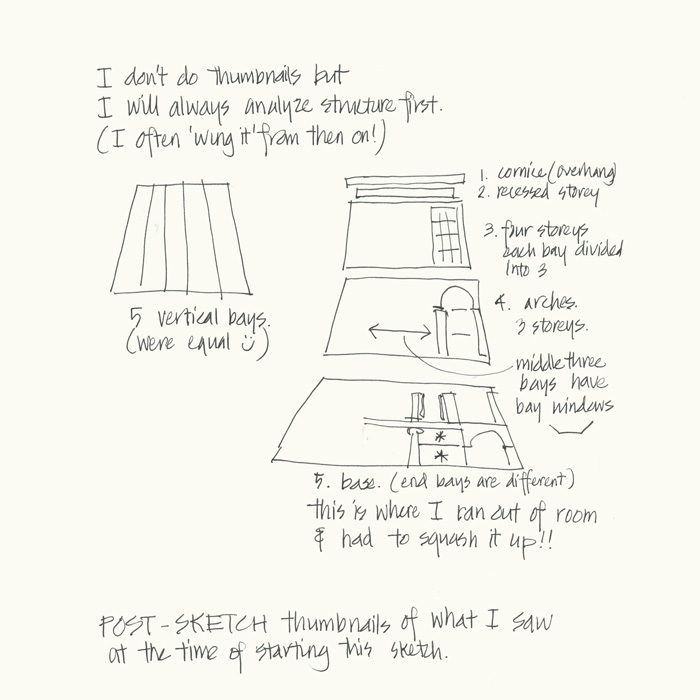 I don't do thumbnails but
I will always analyze structure first.
(I often 'wing it' from then on!)
1. cornice (overhang)
2. recessed storey
3. four storeys
each bay divided
into 3
5 vertical bays.
(were equal ü)
4. arches.
3 storeys.
middle three
bays have
bay windows
5. base. (end bays are different)
this is where I ran out of room
& had to squash it up!!
POST-SKETCH thumbnails of what I saw
at the time of starting this sketch.